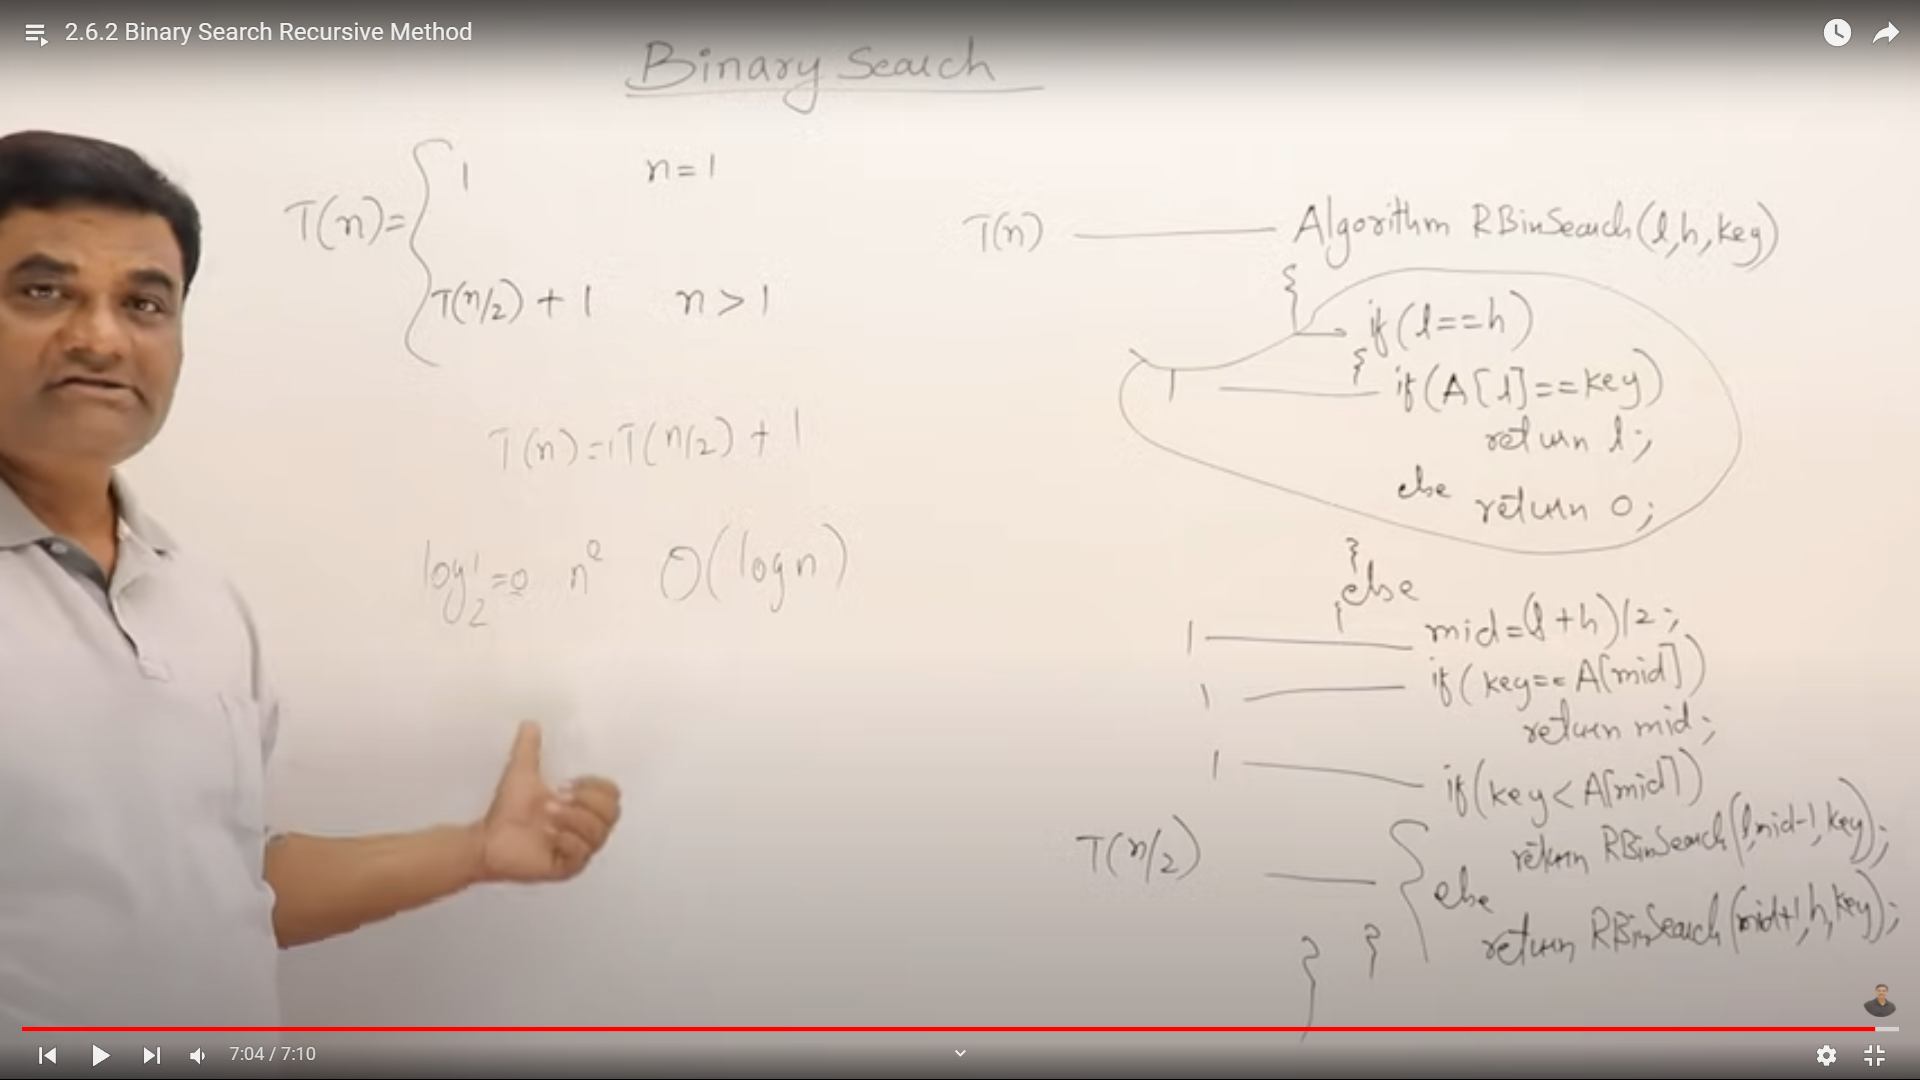 2.6.2 Binary Search Recursive Method
Binary Search
T(n)= { 1 n=1
T(n/2) + 1 n>1
T(n)=1T(n/2) + 1
log₂1=0 n⁰ O(log n)
T(n) Algorithm RBinSearch(l,h,key)
{
if(l==h)
{
1 if(A[l]==key)
return l;
else return 0;
}
else
{
1 mid=(l+h)/2;
1 if(key==A[mid])
return mid;
1 if(key<A[mid])
T(n/2) return RBinSearch(l,mid-1,key);
else
return RBinSearch(mid+1,h,key);
}
}
7:04 / 7:10